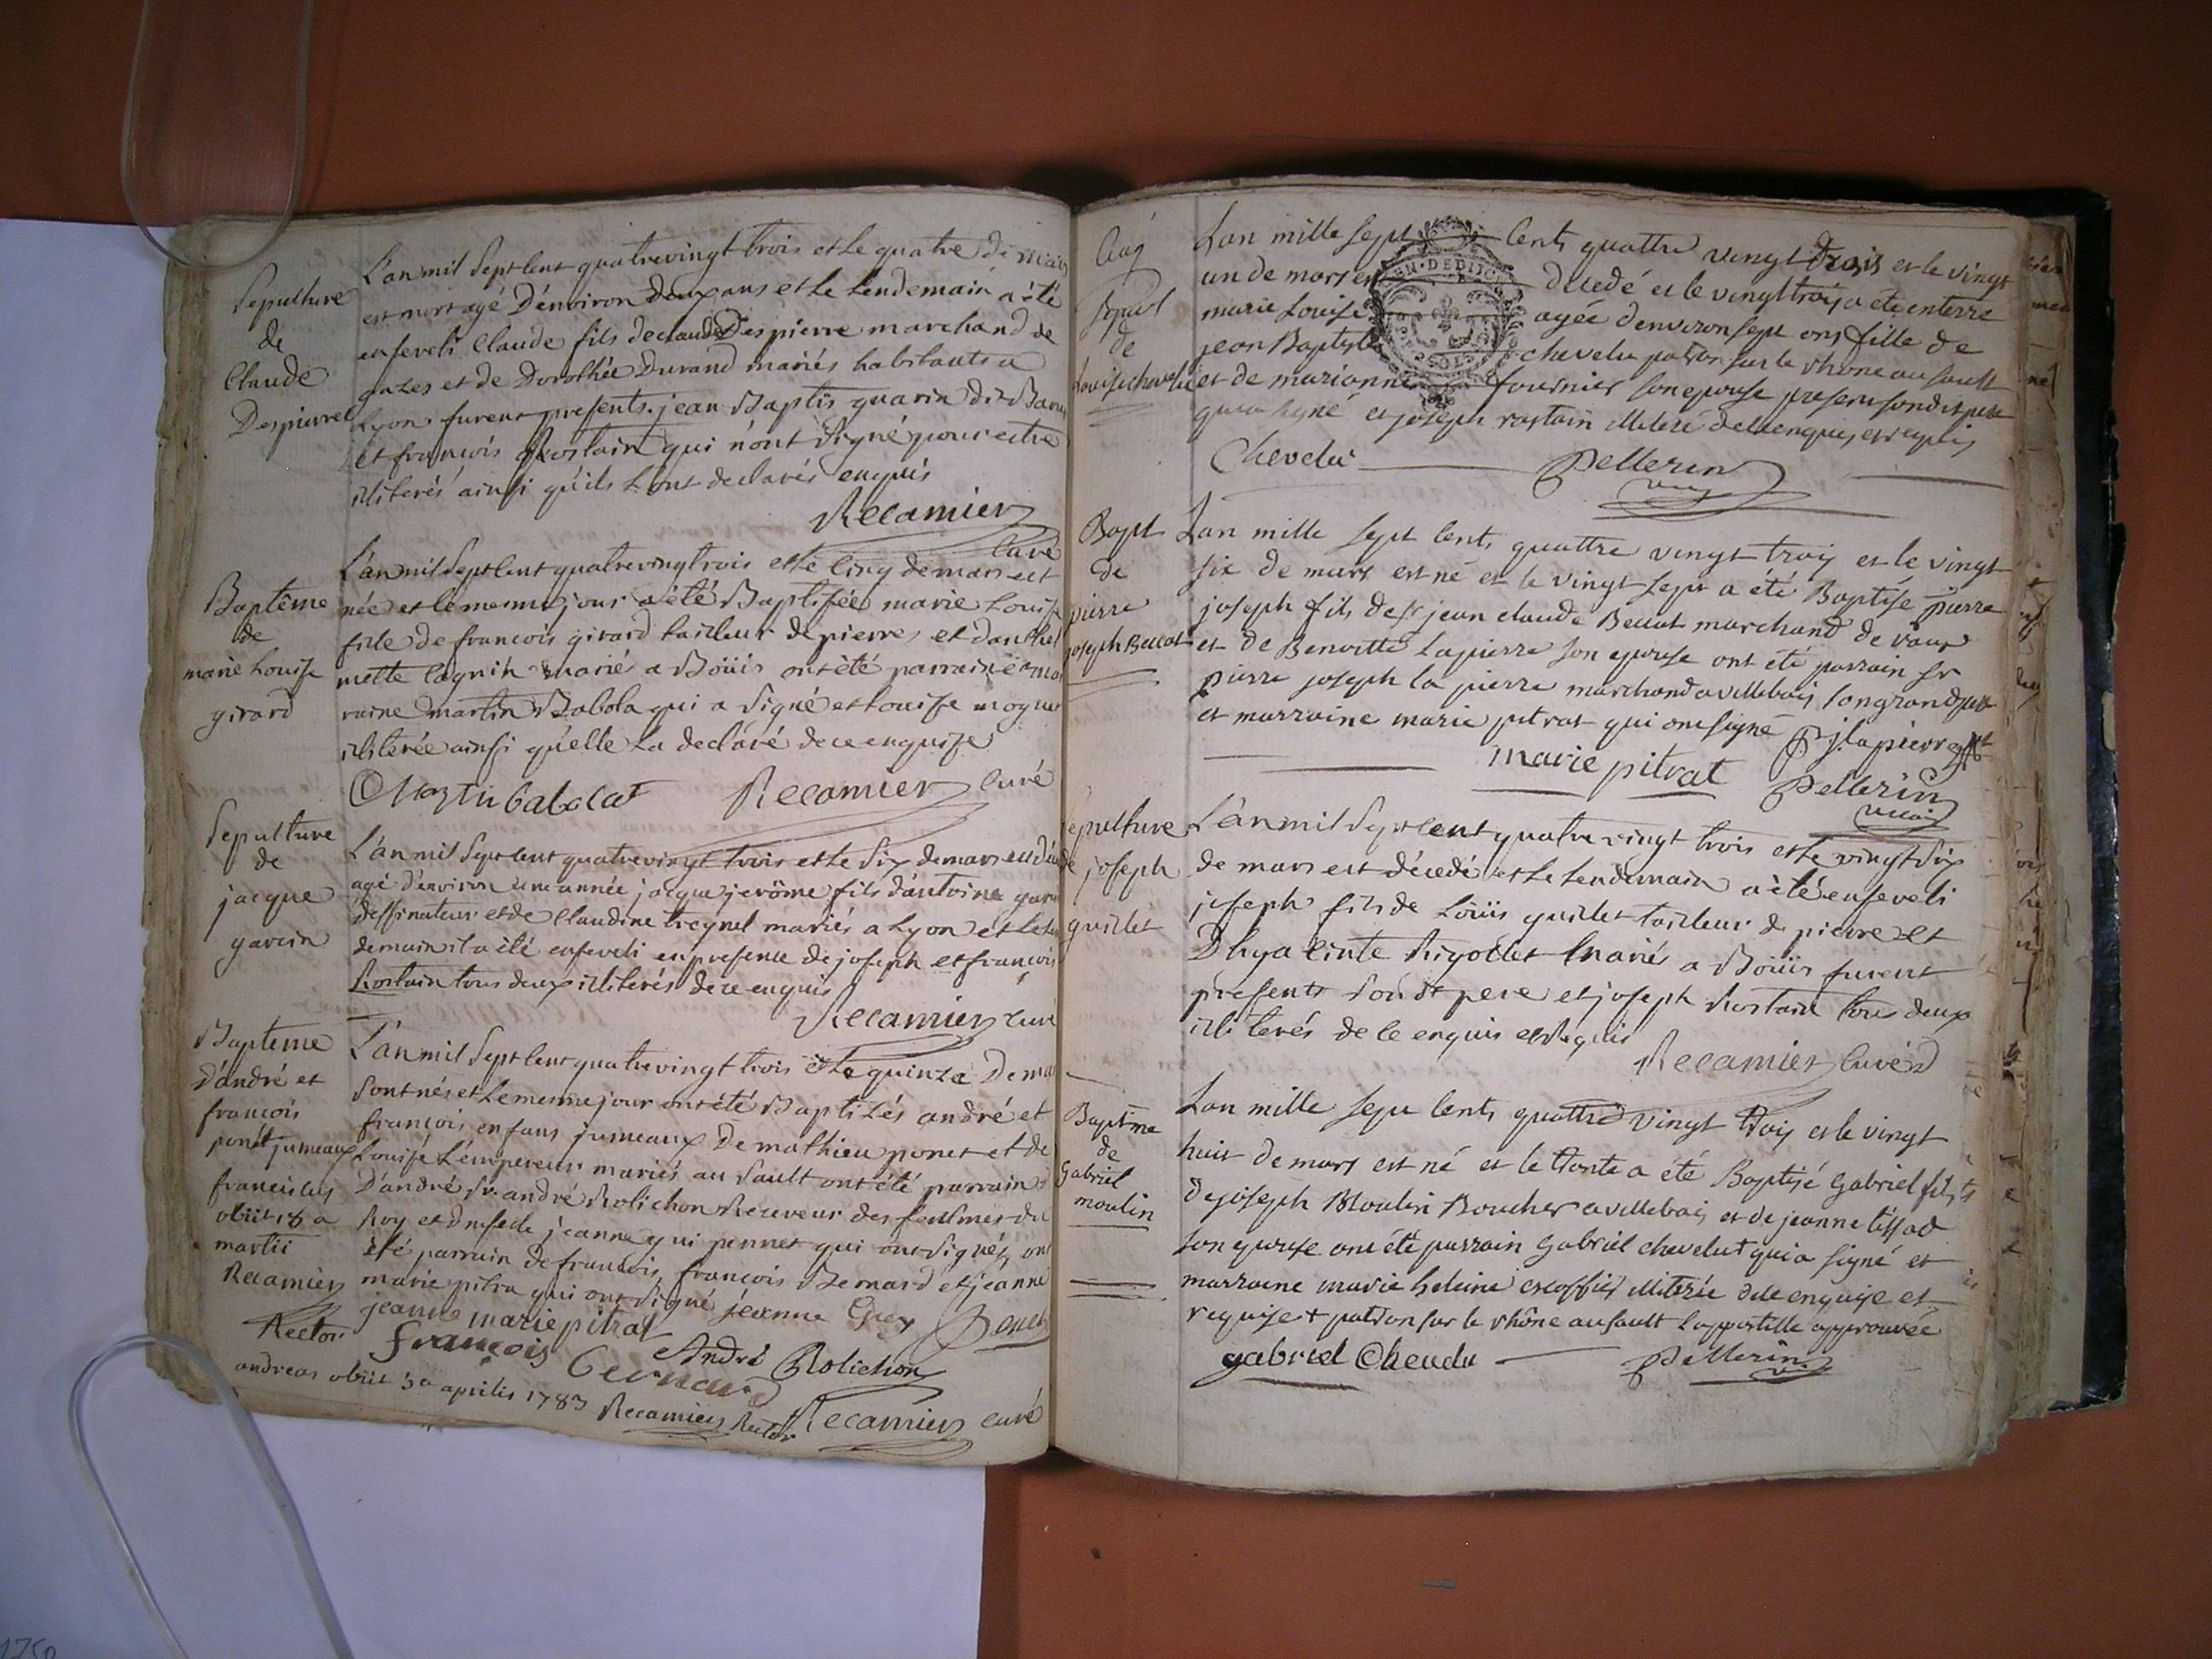 Sepulture
de
Claude
Despierre
L'an mil sept cent quatrevingt trois et le quatre de mars
est mort agé d'environ deux ans et le lendemain a été
enseveli Claude fils de claude Despierre marchand de
gazes et de Dorothée Durand mariés habitants a
Lyon furent presents jean Baptis guarin dit
et françois Rostain qui n'ont signé pour estre
illiterés ainsi qu'ils l'ont declarés enquis
Recamier
Curé
Baptême
de
marie Louise
girard
L'an mil sept cent quatrevingt trois et le cinq de mars est
née et le meme jour a été Baptisée marie Louise
fille de françois girard tailleur de pierres et
mette mariés a Boüis ont été parrain et mar
raine martin Babola qui a signé et Louise
illiterée ainsi qu'elle la declaré de ce enquise
Martin balolat Recamier Curé
Sepulture
de
jacque
garcin
L'an mil sept cent quatrevingt trois et le six de mars est
agé d'environ une année jacque jerôme fils d'antoine
dessinateur et de Claudine mariés a Lyon et le len
demain il a été enseveli en presence de joseph et françois
Rostain tous deux illiterés de ce enquis
Recamier curé
Bapteme
d'andré et
francois
ponét jumeaux
franciscus
obiit 18 a
martii
Recamier
Rector
L'an mil sept cent quatrevingt trois et le quinze de mars
sont nés et le meme jour ont été Baptisés andré et
françois enfans jumeaux de mathieu ponet et de
Louise L'empereur mariés au Sault ont été parrain
D'andré Sr. andré Rolichon Receveur des fermes du
Roy et jeanne qui ont signés, ont
été parrain de francois, françois Bernard et jeanne
marie pitra qui ont signé jeanne
jeanne marie pitrat
françois Bernard André Rolichon
andreas obiit 3a aprilis 1783 Recamier Rector Recamier curé
Sepul
de
Louise chevelu
Lan mille sept cents quattre vingt trois et le vingt
un de mars est decedé et le vingt trois a été enterre
marie Louise agée d'environ sept ans fille de
jean Baptiste chevelu patron sur le rhône au sault
et de marianne fournier son epouse presens son dit pere
qui a signé et joseph rostain illiteré de ce enquis et requis
Chevelu Pellerin
vic
Bapt
de
pierre
joseph Beccat
Lan mille sept cents quattre vingt trois et le vingt
six de mars est né et le vingt sept a été Baptisé pierre
joseph fils de sr jean claude Beccat marchand de vaux
et de Benoitte Lapierre son epouse ont été parrain sr
pierre joseph la pierre marchand a villebois son grand pere
et marraine marie pitrat qui ont signé P j. lapierre
marie pitrat Pellerin
vicaire
Sepulture
de joseph
guillet
L'an mil sept cent quatre vingt trois et le vingt six
de mars est décedé et le lendemain a été enseveli
joseph fils de Loüis guillet tailleur de pierre et
D'hyacinte Rigollet mariés a Boüis furent
presents son dt pere et joseph Rostain tous deux
illiterés de ce enquis et requis
Recamier Curé
Baptême
de
Gabriel
moulin
Lan mille sept cents quattre vingt trois et le vingt
huit de mars est né et le trente a été Baptisé Gabriel fils
de joseph Moulin Boucher a villebois et de jeanne tissot
son epouse ont été parrain Gabriel chevelu + qui a signé et
marraine marie heleine escoffier illiterée de ce enquise et
requise + patron sur le rhône au sault l'appostille approuvée
gabriel Chevelu Pellerin